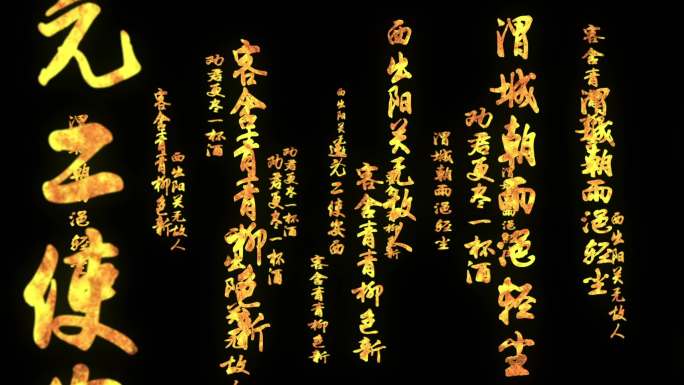 西出阳关无故人
渭城朝雨浥轻尘
客舍青
渭城朝雨浥轻尘
劝君更尽一杯酒
渭城朝雨浥轻尘
西出阳关无故人
客舍青青柳色新
西出阳关
送元二使安西
客舍青青柳色新
劝君更尽一杯酒
劝君更尽一杯酒
客舍青青柳色新
无故人
劝君更尽一杯酒
西出阳关无故人
客舍青青柳色新
渭城朝雨浥轻
元二使